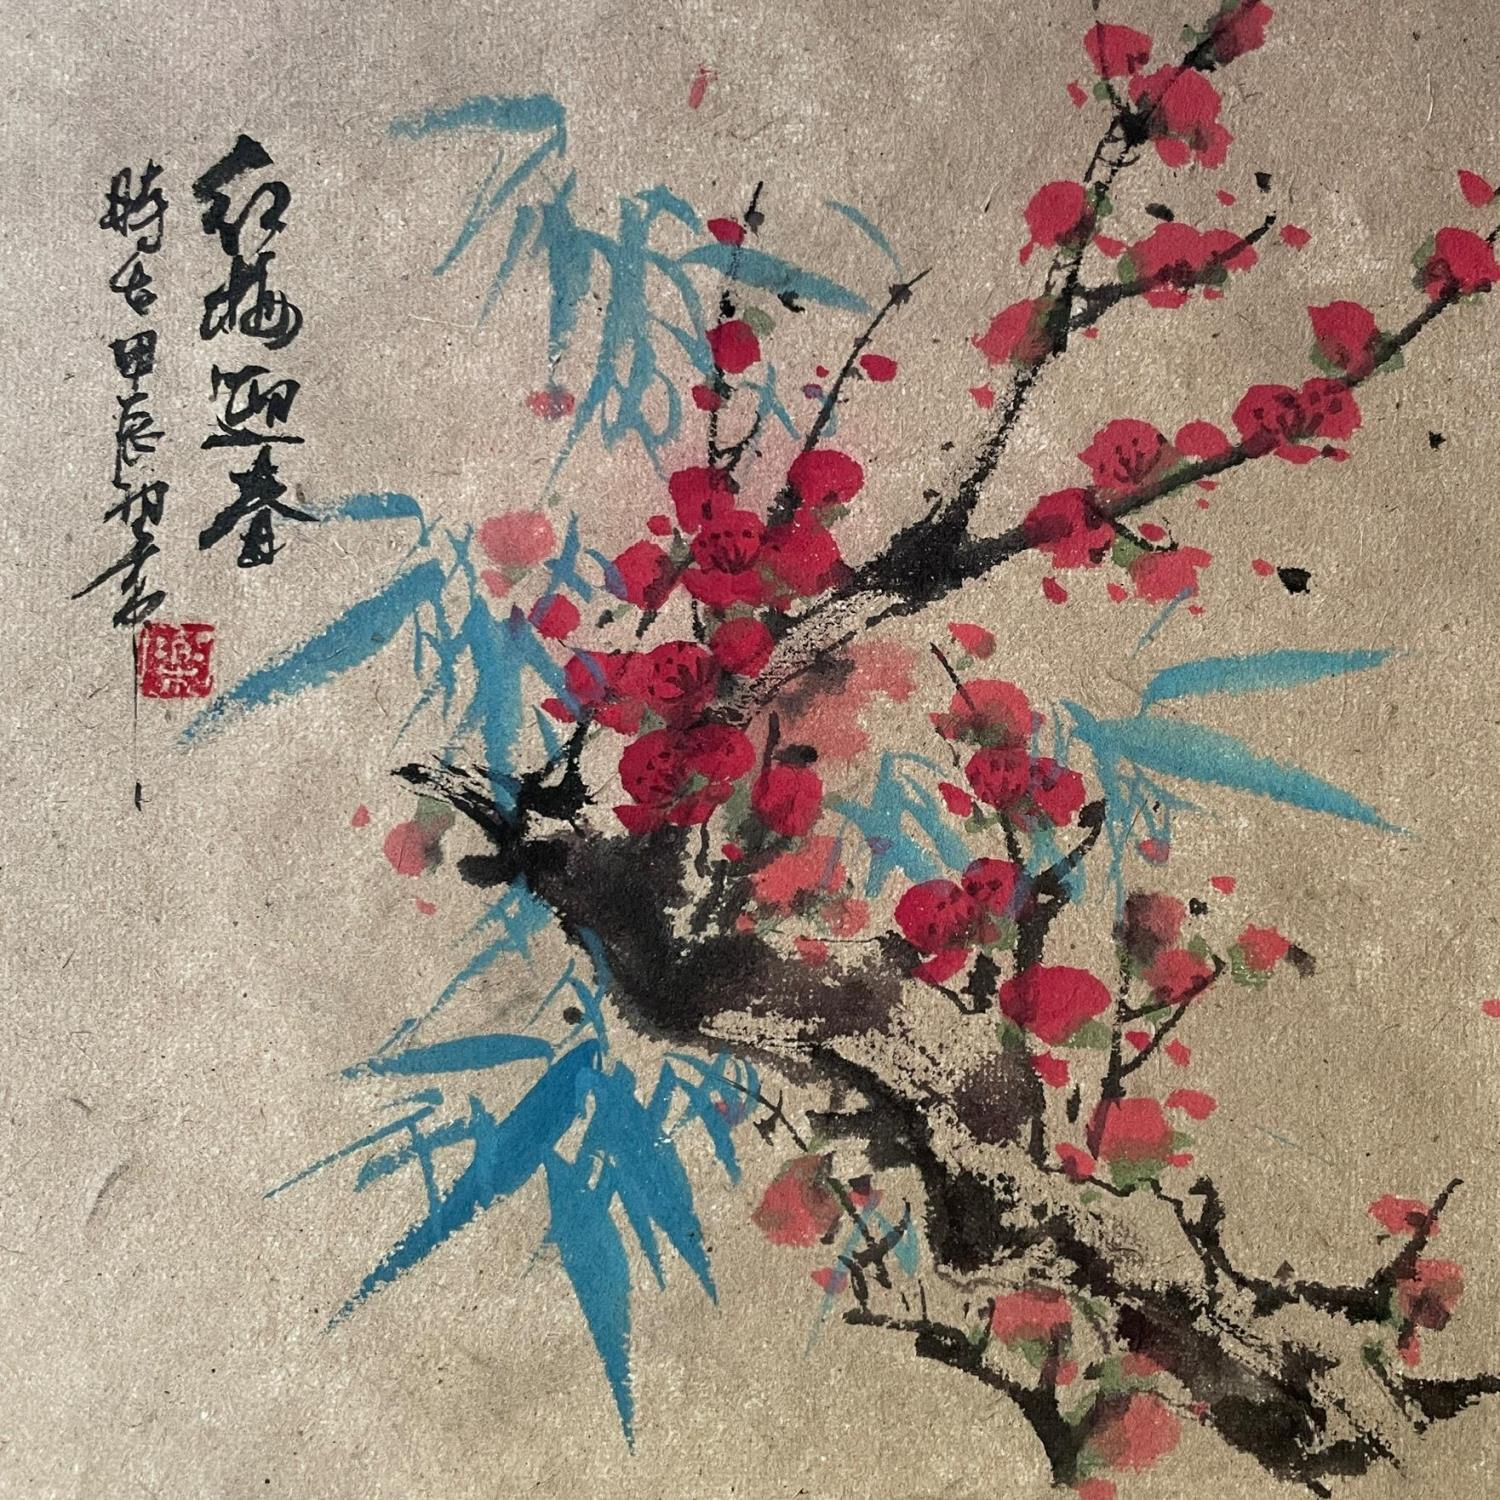 红梅迎春
時在甲辰初春